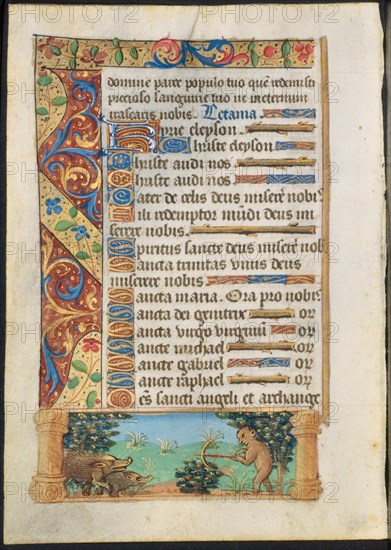 domine parce populo tuo quē redemisti
precioso sanguine tuo ne ineternum
irascaris nobis. Letania.
Kyrie eleyson.
Christe eleyson.
Christe audi nos
Christe audi nos
Pater de celis deus miserē nobi⁹
Fili redemptor mūdi deus mi
serere nobis.
Spiritus sancte deus miserē nob
Sancta trinitas vnus deus
miserere nobis
Sancta maria. Ora pro nobis
Sancta dei genitrix or
Sancta virgo virginū or
Sancte michael or
Sancte gabriel or
Sancte raphael or
Oēs sancti angeli et archange